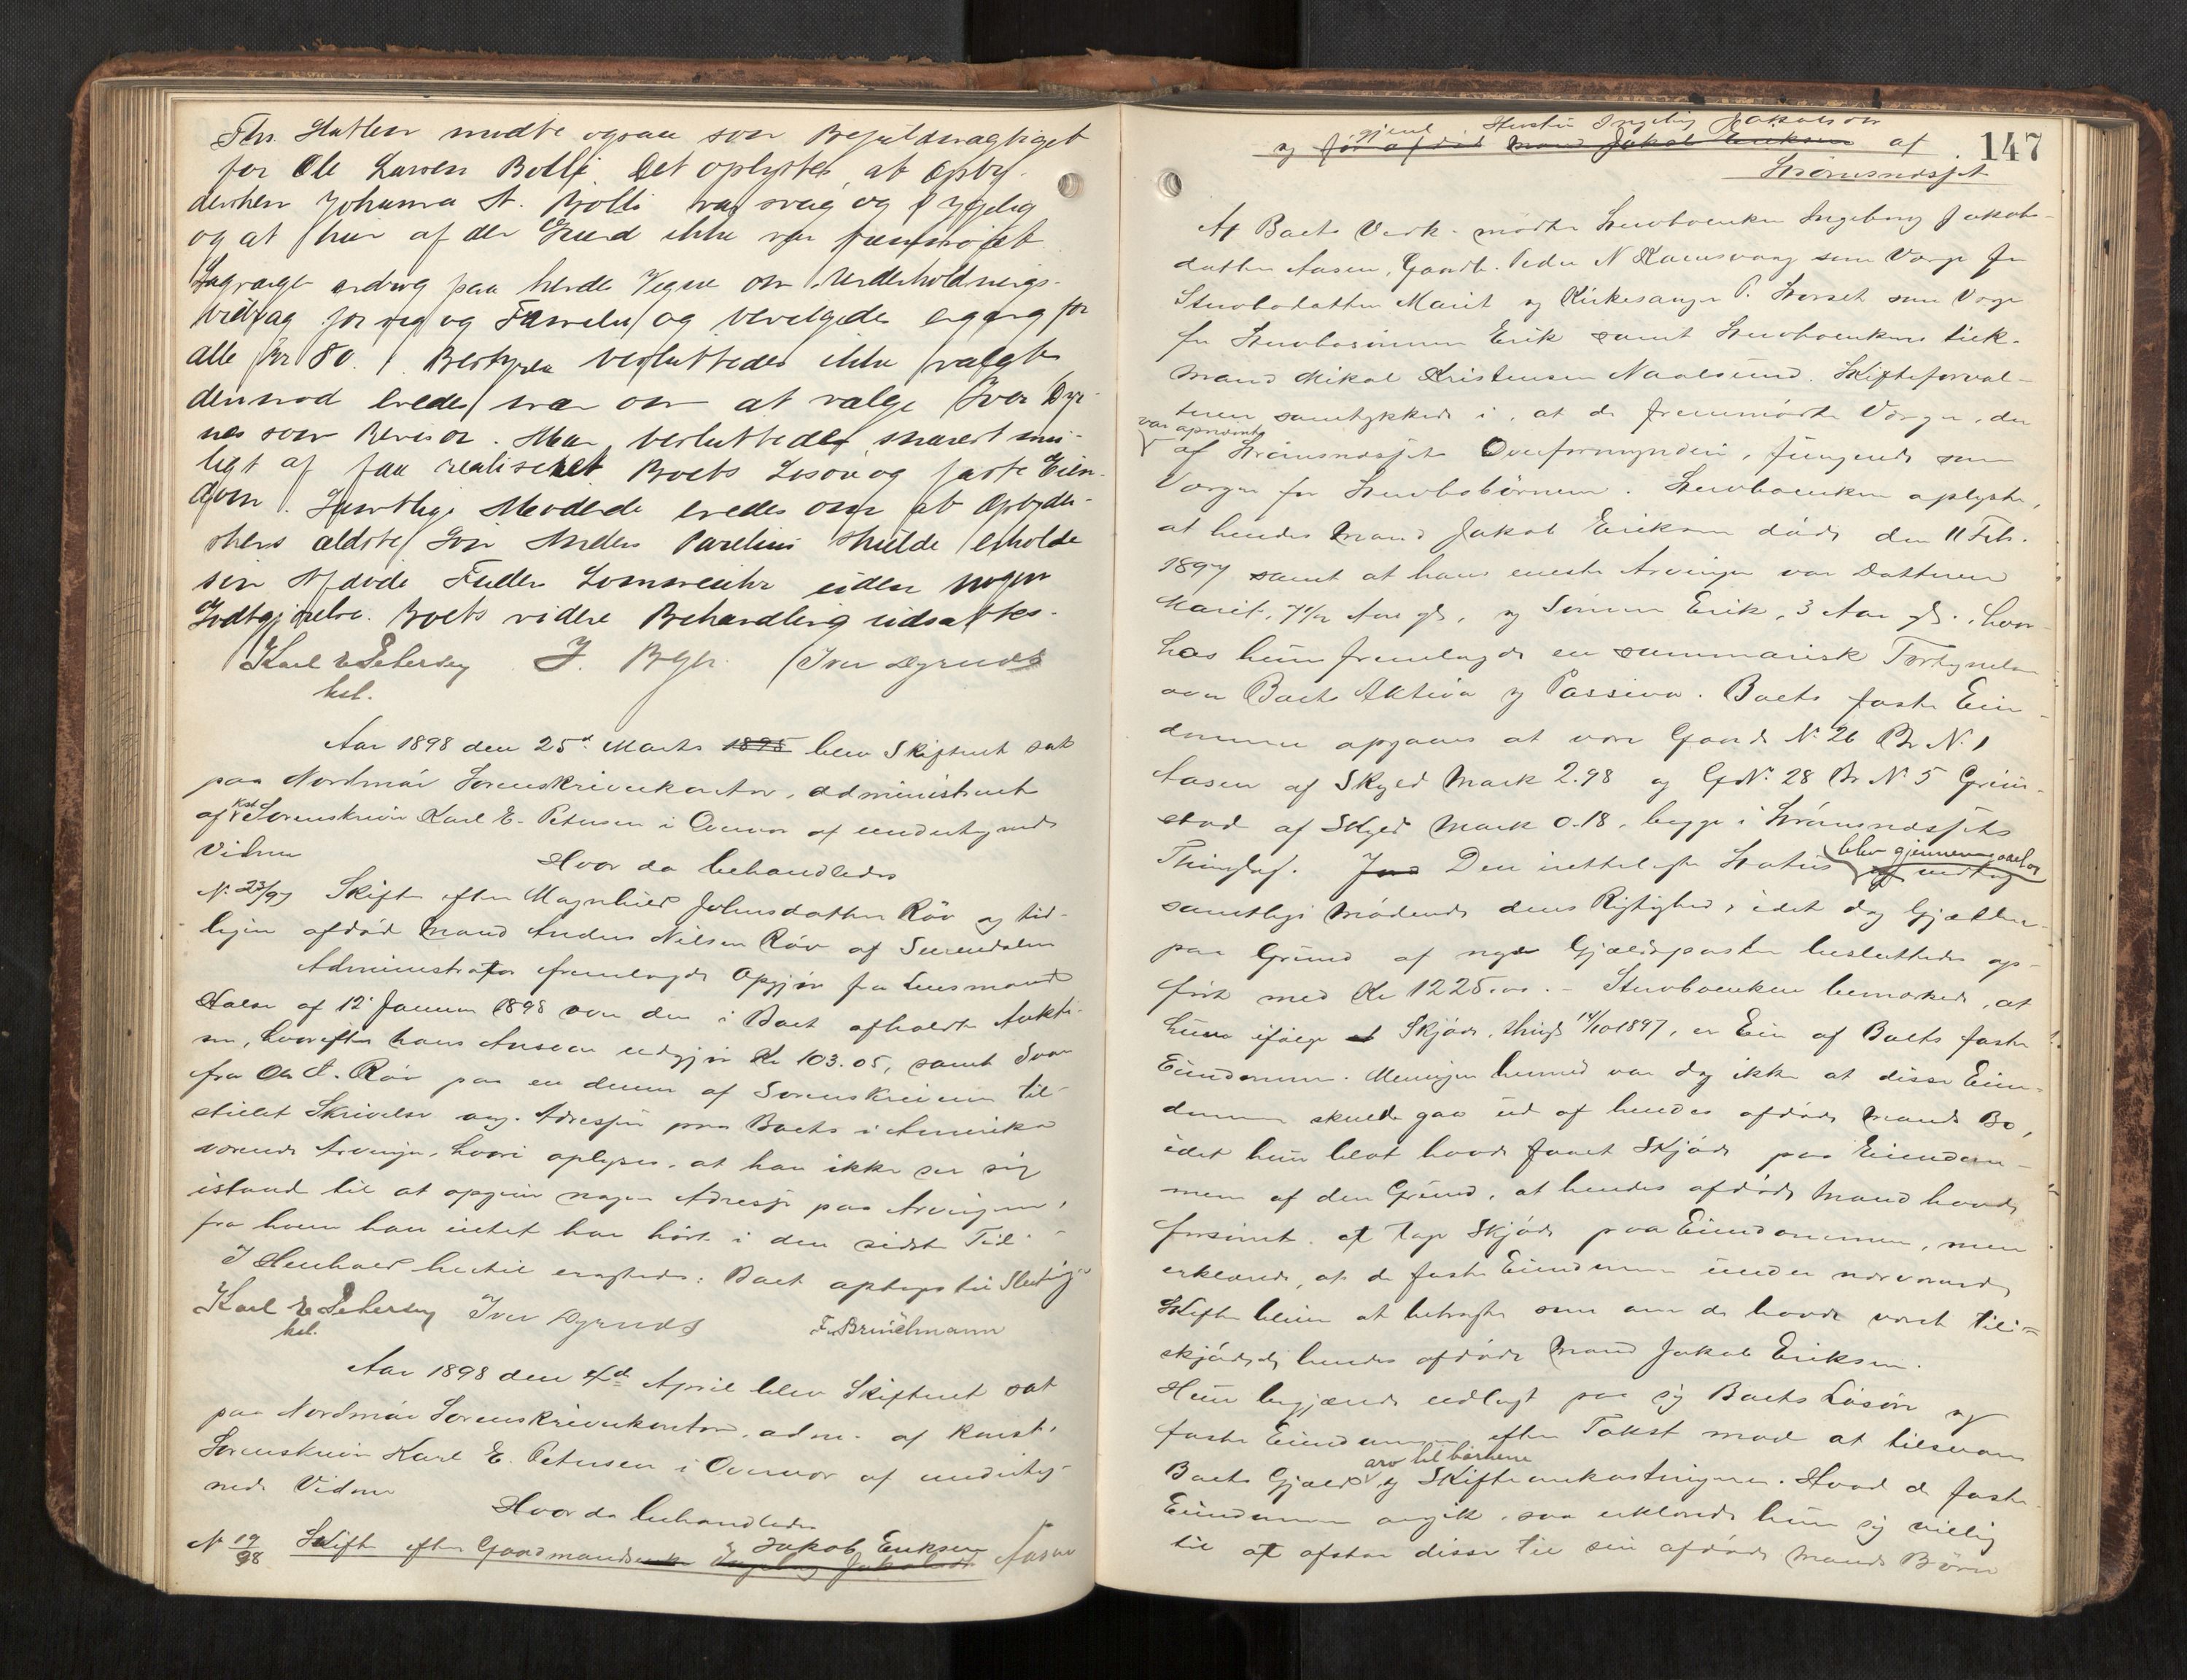 Thv. Hatlen mødte ogsaa som Befuldmægtiget
for Ole Larsen Bolli. Det oplystes, at Opby-
dersken Johanna A. Bolli var svag og sygelig
og at hun af den Grund ikke var fremmødt.
Lagværge androg paa hendes Vegne om Underholdnings-
bidrag for sig og Familie og bevilgedes engang for
alle Kr 80. Bestyrer besluttedes ikke valgt
derimod enedes man om at vælge Iver Dyr-
nes som Revisor. Man besluttedes snarest mu-
ligt at faa realiseret Boets Løsøre og faste Eien-
dom. Samtlige Mødende enedes om at Opbyder-
skens ældste Søn Anders Parelius skulde erholde
sin Afdøde Faders Lommeuhr uden nogen
Godtgjørelse. Boets videre Behandling udsattes.
Karl E Petersen J. Bgh. Iver Dyrnes
kst.
Aar 1898 den 25d Marts 1898 blev Skifteret sat
paa Nordmør Sorenskriverkontor, administreret
af Kst Sorenskriver Karl E. Petersen i Overvær af undertegnede
Vidner
Hvor da behandledes
N. 23/97 Skifte efter Magnhild Johnsdatter Røv og tid-
ligere afdød Mand Anders Nilsen Røv af Surendalen
Administrator fremlagde Opgjør fra Lensmand
Halse af 12 Januar 1898 over den i Boet afholdte Aukti-
on, hvorefter hans Ansvar udgjør Kr 103.05, samt Svar
fra Ole A. Røv paa en denne af Sorenskriveren til-
stillet Skrivelse ang. Adresser paa Boets i Amerika
værende Arvinger, hvori oplyses, at han ikke ser sig
istand til at opgive nogen Adresse paa Arvingerne,
fra hvem han intet har hørt i den sidste Tid.
I Henhold hertil eragtedes: Boet optages til Slutning
Karl E Petersen Iver Dyrnes F. Brinchmann
kst.
Aar 1898 den 2d April blev Skifteret sat
paa Nordmør Sorenskriverkontor, adm. af Konst.
Sorenskriver Karl E. Petersen i Overvær af underteg-
nede Vidner
Hvor da behandledes
N 19/98 Skifte efter Gaardmand Jakob Eriksen Aasen
147
og gjenl Hustru Ingeborg Jakobsdr
før afdød Mand Jakob Eriksen af
Strømsnæsset
Af Boets Vedk. mødte Stervboenken Ingeborg Jakobs-
datter Aasen, Gaardbr. Peder N Ramsvaag som Værge for
Stervbodatteren Marit og Kirkesanger P. Horset som Værge
for Stervbosønnen Erik samt Stervboenkens tiek.
Mand Mikal Kristensen Naalsund. Skifteforval-
teren samtykkede i, at de fremmødte Værger, der
var opnævnte
af Strømsnæssets Overformynderi, fungerede som
Værger for Stervbobørnene. Stervboenken oplyste,
at hendes Mand Jakob Eriksen døde den 11 Feb.
1897 samt at hans eneste Arvinger var Datteren
Marit, 7 1/2 Aar gl, og Sønnen Erik, 3 Aar gl., hvor-
hos hun fremlagde en summarisk Fortegnelse
over Boets Aktiva og Passiva. Boets faste Eien-
domme opgaves at være Gaards N. 26 Br N. 1
Aasen af Skyld Mark 2.98 og GN. 28 Br N 5 Grim-
stad af Skyld Mark 0.18, begge i Strømsnæssets
Thinglag. Den irettelagte Status blev gjennemgaaet og
vedtog
samtlige Mødende dens Rigtighed, idet dog Gjælden
paa Grund af nye Gjældsposter besluttedes op-
ført med Kr 1225.00. – Stervboenken bemærkede, at
hun ifølge Skjøde, thingl 14/10 1897, er Eier af Boets faste
Eiendomme. Meningen hermed var dog ikke at disse Eien-
domme skulde gaa ud af hendes afdøde Mands Bo,
idet hun blot havde faaet Skjøde paa Eiendom-
mene af den Grund, at hendes afdøde Mand havde
forsømt at tage Skjøde paa Eiendommene, men
erklærede, at de faste Eiendomme under nærværende
Skifte bliver at betragte som om de havde været til-
skjødede hendes afdøde Mand Jakob Eriksen.
Hun begjærede udlagt paa sig Boets Løsøre og
faste Eiendomme efter Takst mod at tilsvare
arv til børnene
Boets Gjæld og Skifteomkostningerne. Hvad de faste
Eiendomme angik, saa erklærede hun sig villig
til at afstaa disse til sin afdøde Mands Børn